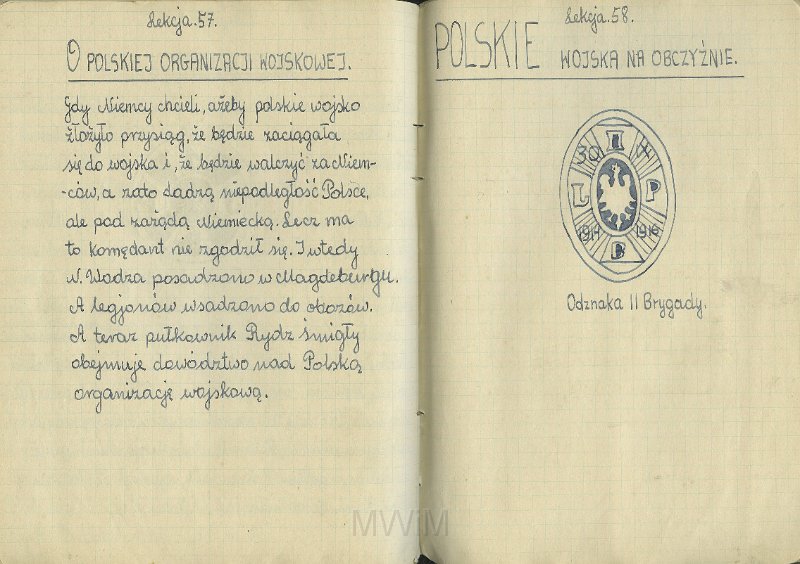 Lekcja.57.
O POLSKIEJ ORGANIZACJI WOJSKOWEJ.
Gdy Niemcy chcieli, ażeby polskie wojsko
złożyło przysiąg, że będzie zaciągała
się do wojska i, że będzie walczyć za Niem-
-ców, a zato dadzą niepodległość Polsce,
ale pod zażądą Niemiecką. Lecz ma
to komędant nie zgodził się. I wtedy
N. Wodza posadzono w Magdeburgu.
A legjonów wsadzono do obozów.
A teraz pułkownik Rydz śmigły
obejmuje dowództwo nad Polską
organizację wojskową.
Lekcja.58.
POLSKIE WOJSKA NA OBCZYŹNIE.
II
30 X
L P
1914 1916
B
Odznaka II Brygady.
MWiM